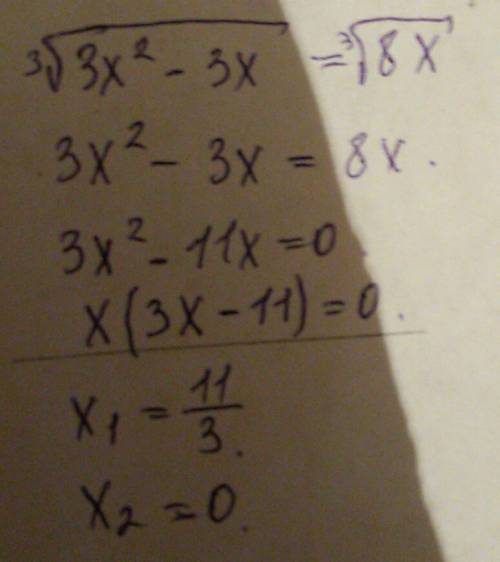 ∛(3x² - 3x) = ∛(8x)
3x² - 3x = 8x.
3x² - 11x = 0.
x(3x - 11) = 0.
x₁ = 11/3.
x₂ = 0.